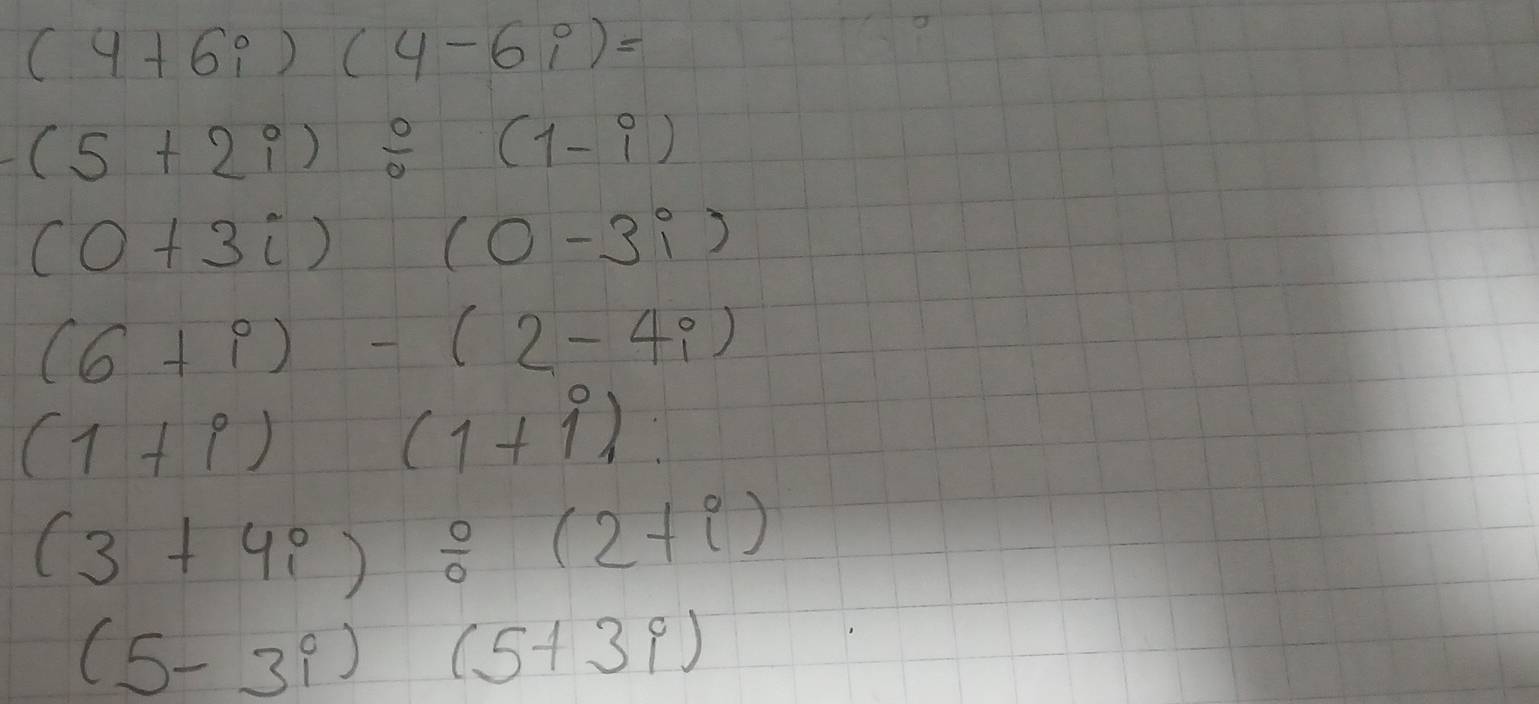 (4+6i) (4-6i)=
-(5+2i) ÷ (1-i)
(0+3i) (0-3i)
(6+i) - (2-4i)
(1+i) (1+i).
(3+4i) ÷ (2+i)
(5-3i) (5+3i)